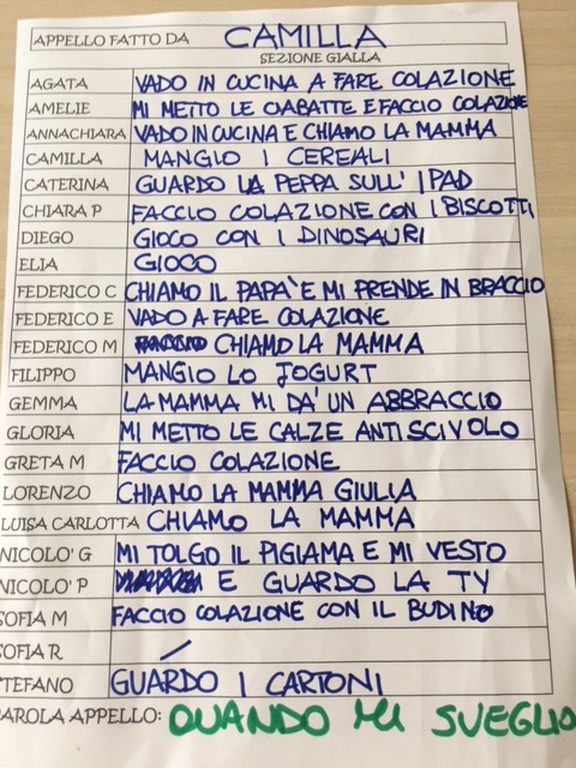 APPELLO FATTO DA CAMILLA
SEZIONE GIALLA
AGATA VADO IN CUCINA A FARE COLAZIONE
AMELIE MI METTO LE CIABATTE E FACCIO COLAZIONE
ANNACHIARA VADO IN CUCINA E CHIAMO LA MAMMA
CAMILLA MANGIO I CEREALI
CATERINA GUARDO LA PEPPA SULL' IPAD
CHIARA P FACCIO COLAZIONE CON I BISCOTTI
DIEGO GIOCO CON I DINOSAURI
ELIA GIOCO
FEDERICO C CHIAMO IL PAPA' E MI PRENDE IN BRACCIO
FEDERICO E VADO A FARE COLAZIONE
FEDERICO M CHIAMO LA MAMMA
FILIPPO MANGIO LO JOGURT
GEMMA LA MAMMA MI DA' UN ABBRACCIO
GLORIA MI METTO LE CALZE ANTISCIVOLO
GRETA M FACCIO COLAZIONE
LORENZO CHIAMO LA MAMMA GIULIA
LUISA CARLOTTA CHIAMO LA MAMMA
NICOLO' G MI TOLGO IL PIGIAMA E MI VESTO
NICOLO' P E GUARDO LA TV
SOFIA M FACCIO COLAZIONE CON IL BUDINO
SOFIA R /
TEFANO GUARDO I CARTONI
AROLA APPELLO: QUANDO MI SVEGLIO